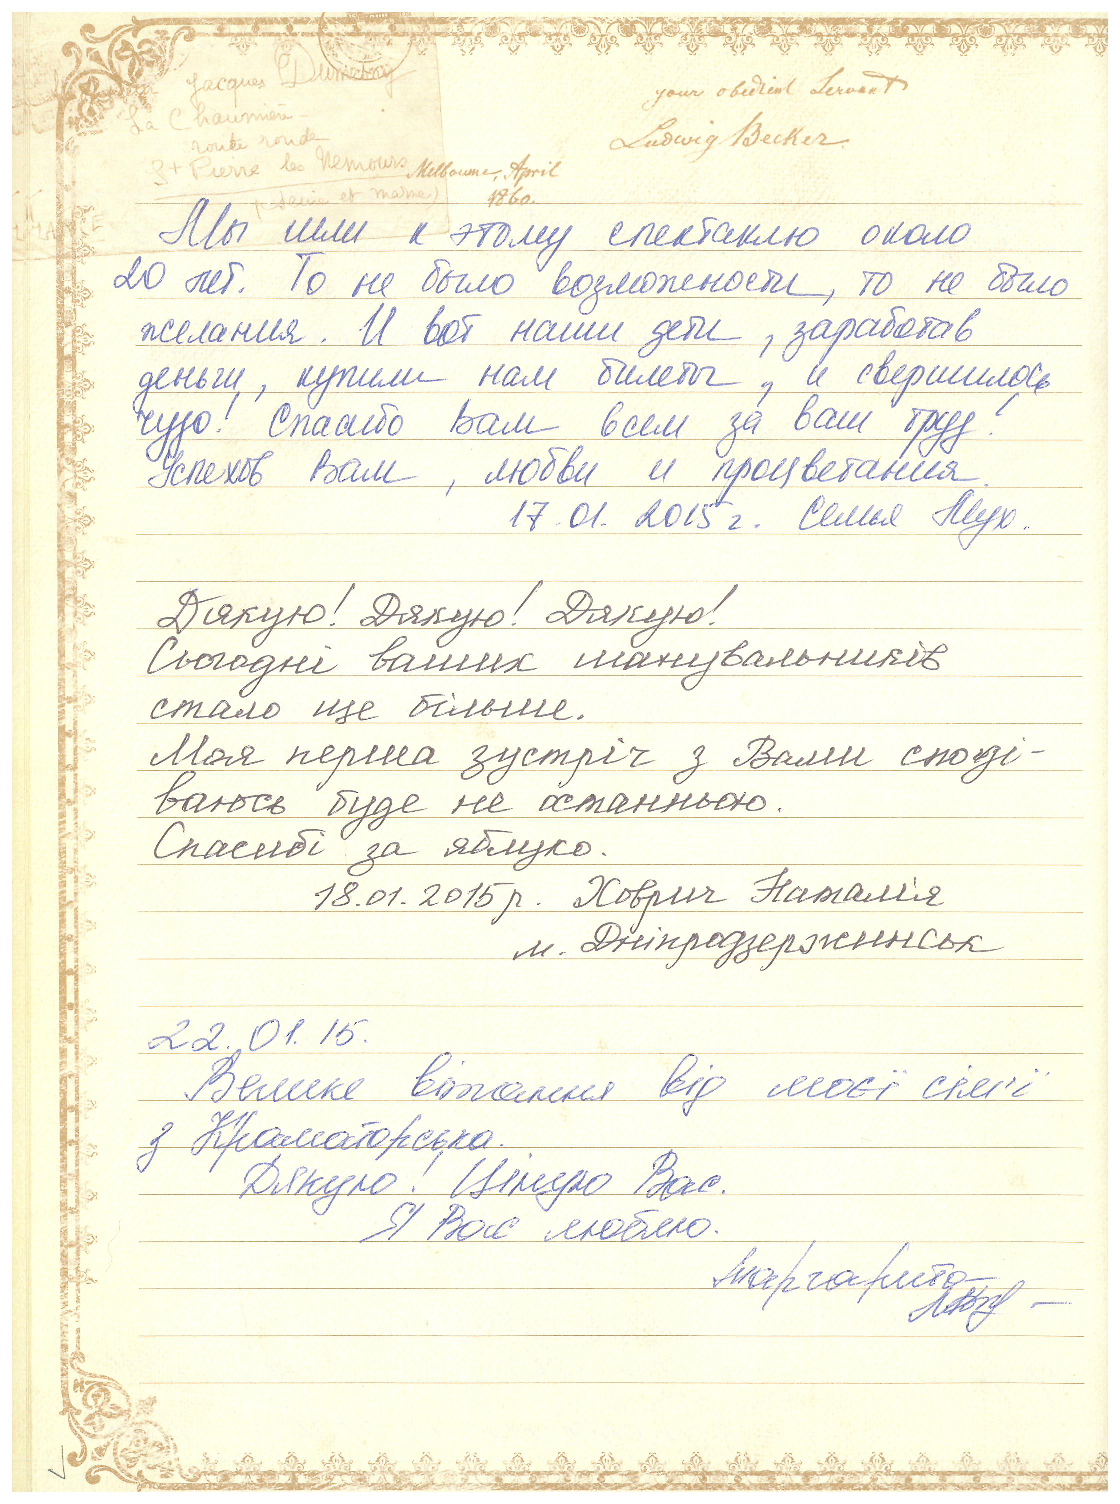 Jacques Dumesny
La Chaumière
route ronde
St Pierre les Nemours
(Seine et Marne)
your obedient Servant
Ludwig Becker
Melbourne, April
1860.
Мы шли к этому спектаклю около
20 лет. То не было возможности, то не было
желания. И вот наши дети, заработав
деньги, купили нам билеты, и свершилось
чудо! Спасибо Вам всем за ваш труд!
Успехов Вам, любви и процветания.
17.01.2015 г. Семья Мух.
Дякую! Дякую! Дякую!
Сьогодні ваших шанувальників
стало ще більше.
Моя перша зустріч з Вами споді-
ваюсь буде не останньою.
Спасибі за яблуко.
18.01.2015р. Ховрич Наталія
м. Дніпродзержинськ
22.01.15.
Велике вітання від моєї сім'ї
з Краматорська.
Дякую! Ціную Вас.
Я Вас люблю.
Маргарита